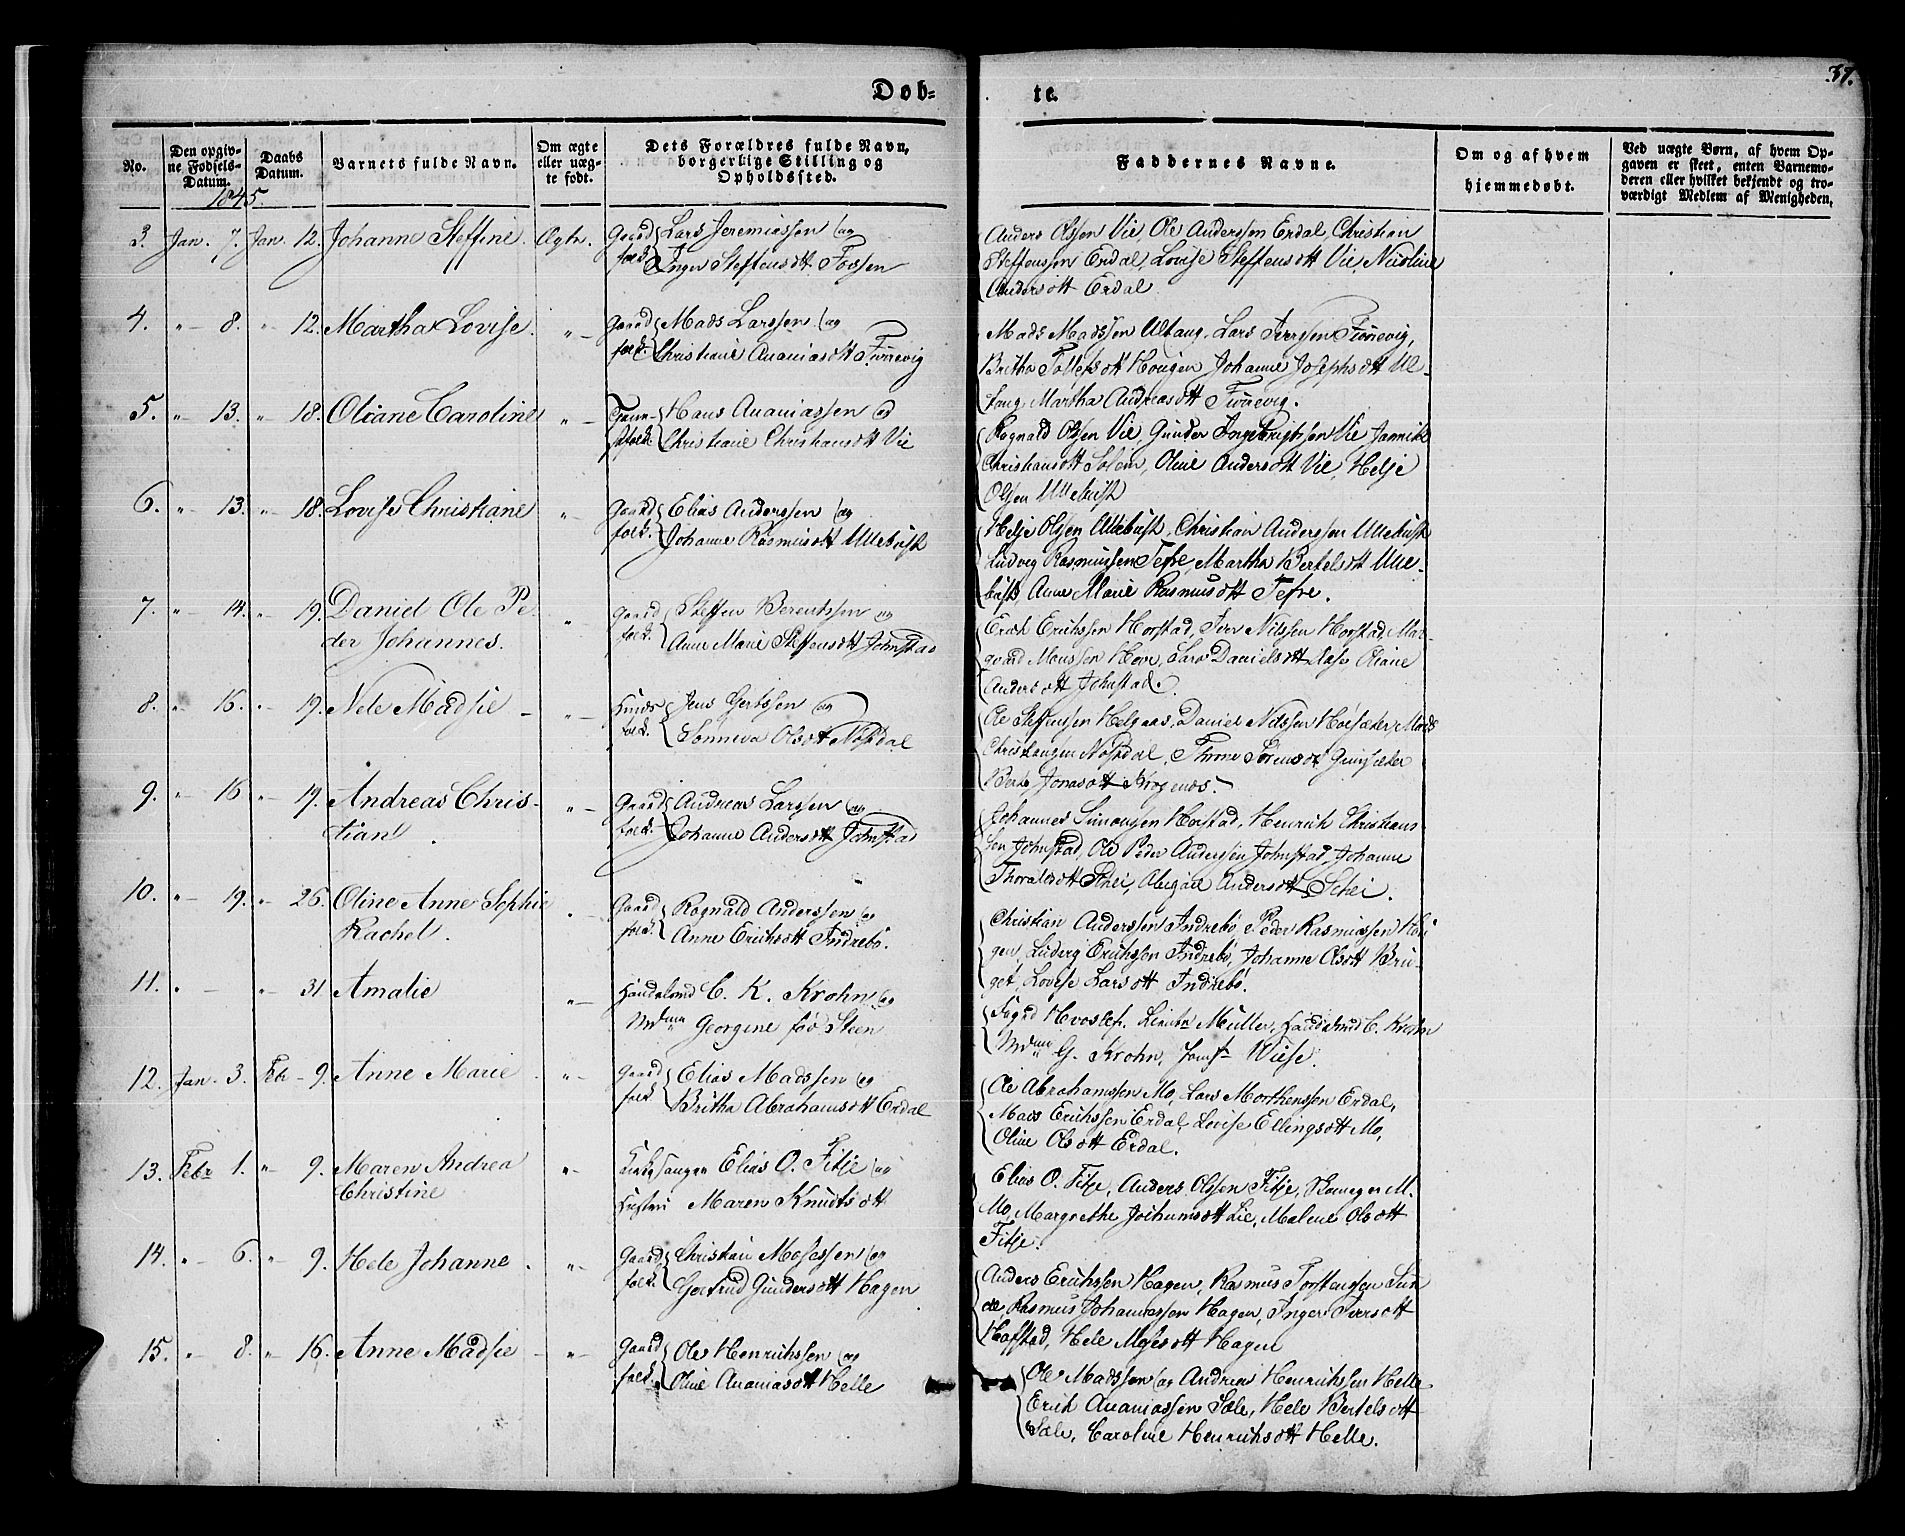 37.
Døb-
te.
No.
Den opgiv-
ne Fødsels-
Datum.
1845
Daabs
Datum.
Varnets fulde Navn.
Om ægte
eller uæg-
te født.
Dets Forældres fulde Navn,
borgerlige Stilling og
Opholdssted.
Faddernes Navne.
Om og af hvem
hjemmedøbt.
Ved uægte Børn, af hvem Op-
gaven er skeet, enten Barnemo-
deren eller hvilket bekjendt og tro-
værdigt Medlem af Menigheden.
3. Jan. 7. Jan. 12. Johanne Steffine. Ægte. Gaard Lars Jeremiassen og
folk. Inger Steffensdtt. Fossen
Anders Olssen Vie, Ole Anderssen Erdal, Christian
Steffenssen Erdal, Lovise Steffensdtt Vie, Nicoline
Andersdtt Erdal
4. " - 8. " 12. Martha Lovise. " - Gaard Mads Larssen og
folk. Christiane Ananiasdtt Furrevig
Mads Madssen Ultang, Lars Iverssen Furrevig,
Britha Tollefsdtt Hougen Johanne Josephsdtt Ul-
tang, Martha Andreasdtt Furrevig.
5. " - 13. " 18. Oliane Caroline " - Hans Ananiassen og
Christiane Christiansdtt Vie
Rognald Olssen Vie, Gunder Ingebrigtssen Vie Jannike
Christiansdtt Solem, Oline Andersdtt Vie, Helje
Olssen Ullebust
6. " - 13. " - 18. Lovise Christiane " - Gaard Elias Anderssen og
folk. Johanne Rasmusdtt Ullebust
Helje Olssen Ullebust, Christian Anderssen Ullebust
Ludvig Rasmussen Tefre, Martha Bertelsdtt Ulle-
bust, Anne Marie Rasmusdtt Tefre.
7. " - 14. " - 19. Daniel Ole Pe-
der Johannes. " - Gaard Steffen Berentssen og
folk. Anne Marie Steffensdtt Johnstad
Erik Erikssen Horstad, Iver Nilssen Horstad, Mar-
Monssen Hove, Danielsdtt Aase Oliane
Andersdtt Johnstad.
8. " - 16. " - 19. Nele Madsie - " - Jens Gertssen og
folk. Sønneva Olsdtt Nøsdal
Ole Steffenssen Helgaas, Daniel Nilssen Horsæter, Mads
Christenssen Nøsdal, Sørensdtt
Jonasdtt
9. " - 16 " - 19. Andreas Chris-
tian. " - Gaard Andreas Larssen og
folk. Johanne Andersdtt Johnstad
Johannes Simonssen Horstad, Henrich Christians-
sen Johnstad, Ole Peder Anderssen Johnstad, Johanne
Thoralsdtt Schei, Abigael Andersdtt Schei.
10. " - 19. " - 26. Oline Anne Sophie
Rachel. " Gaard Rognald Anderssen og
folk. Anne Erichsdtt Indrebø.
Christian Anderssen Indrebø, Peder Rasmussen Hou-
gen, Ludvig Erichssen Indrebø, Johanne Olsdtt Bru-
get, Lovise Larsdtt Indrebø.
11. " - " - 31 Amalie " - Handelsmd C. K. Krohn og
Mdme Georgine fød Steen
Hvoslef. Müller, Handelsmd C. Krohn
Mdme G. Krohn, Jomf. Wiese.
12. Jan. 3. Feb - 9. Anne Marie " - Gaard Elias Madssen og
folk Britha Abrahamsdtt Erdal
Ole Abrahamssen Mo, Lars Morthenssen Erdal,
Mads Erichssen Erdal, Lovise Ellingsdtt Mo,
Oline Olsdtt Erdal.
13. Febr 1. " - 9. Maren Andrea
Christine " - Kirkesanger Elias O. Fitje og
Hustru Maren Knudsdtt
Elias O. Fitje, Anders Olssen Fitje, M.
Mo, Margrethe Jochumsdtt Lie, Malene Olsdtt
Fitje.
14. " - 6. " - 9. Hele Johanne. " - Gaard Christian Mosessen og
folk. Gertrud Gundersdtt Hagen
Anders Erichssen Hagen, Rasmus Torstenssen Sun-
de, Rasmus Johannessen Hagen, Inger Iversdtt
Hafstad, Hele Mosesdtt Hagen
15. " - 8. " - 16. Anne Madsie - " - Gaard Ole Henrichssen og
folk. Oline Ananiasdtt Helle
Ole Madssen og Andrea Henrichssen Helle
Erich Ananiassen Sæle, Hele Bertelsdtt
Sæle, Caroline Henrichsdtt Helle.